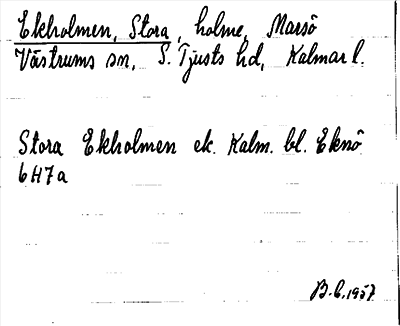 Ekholmen, Stora, holme, Marsö
Västrums sn, S. Tjusts hd, Kalmar l.
Stora Ekholmen ek. Kalm. bl. Eknö
6H7a
B.C. 1957